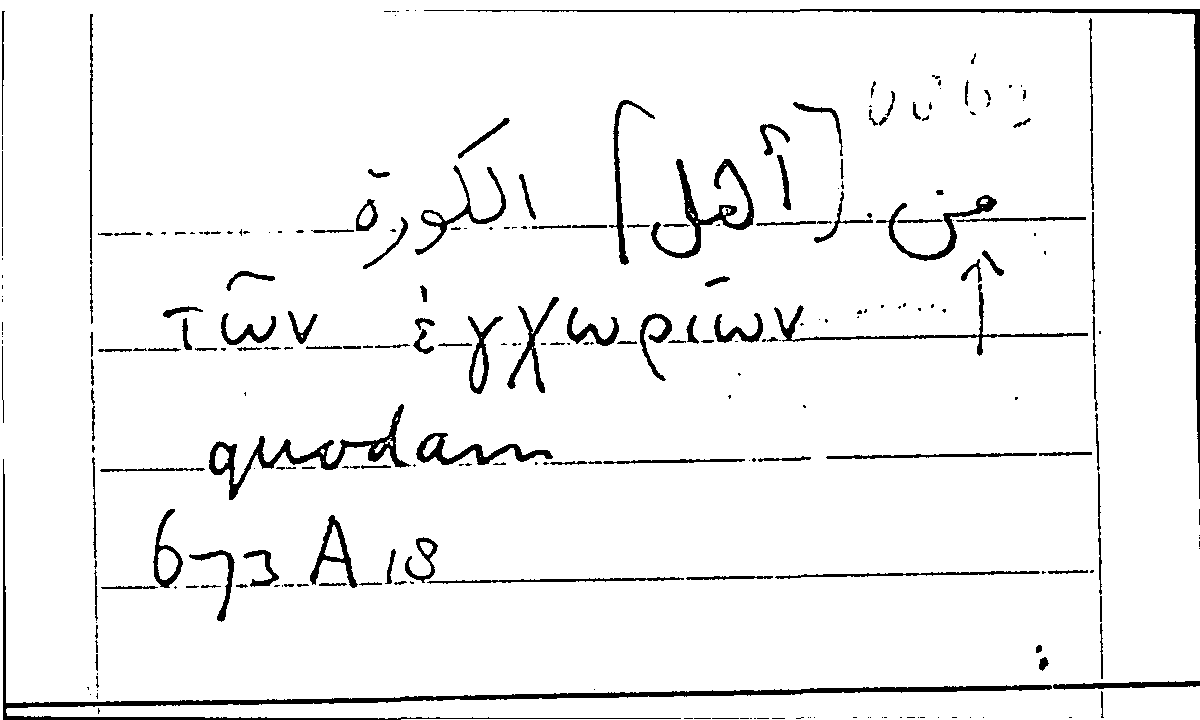 0063
من [أهل] الكورة
τῶν ἐγχωρίων ......... ↑
quodam
673 A 18